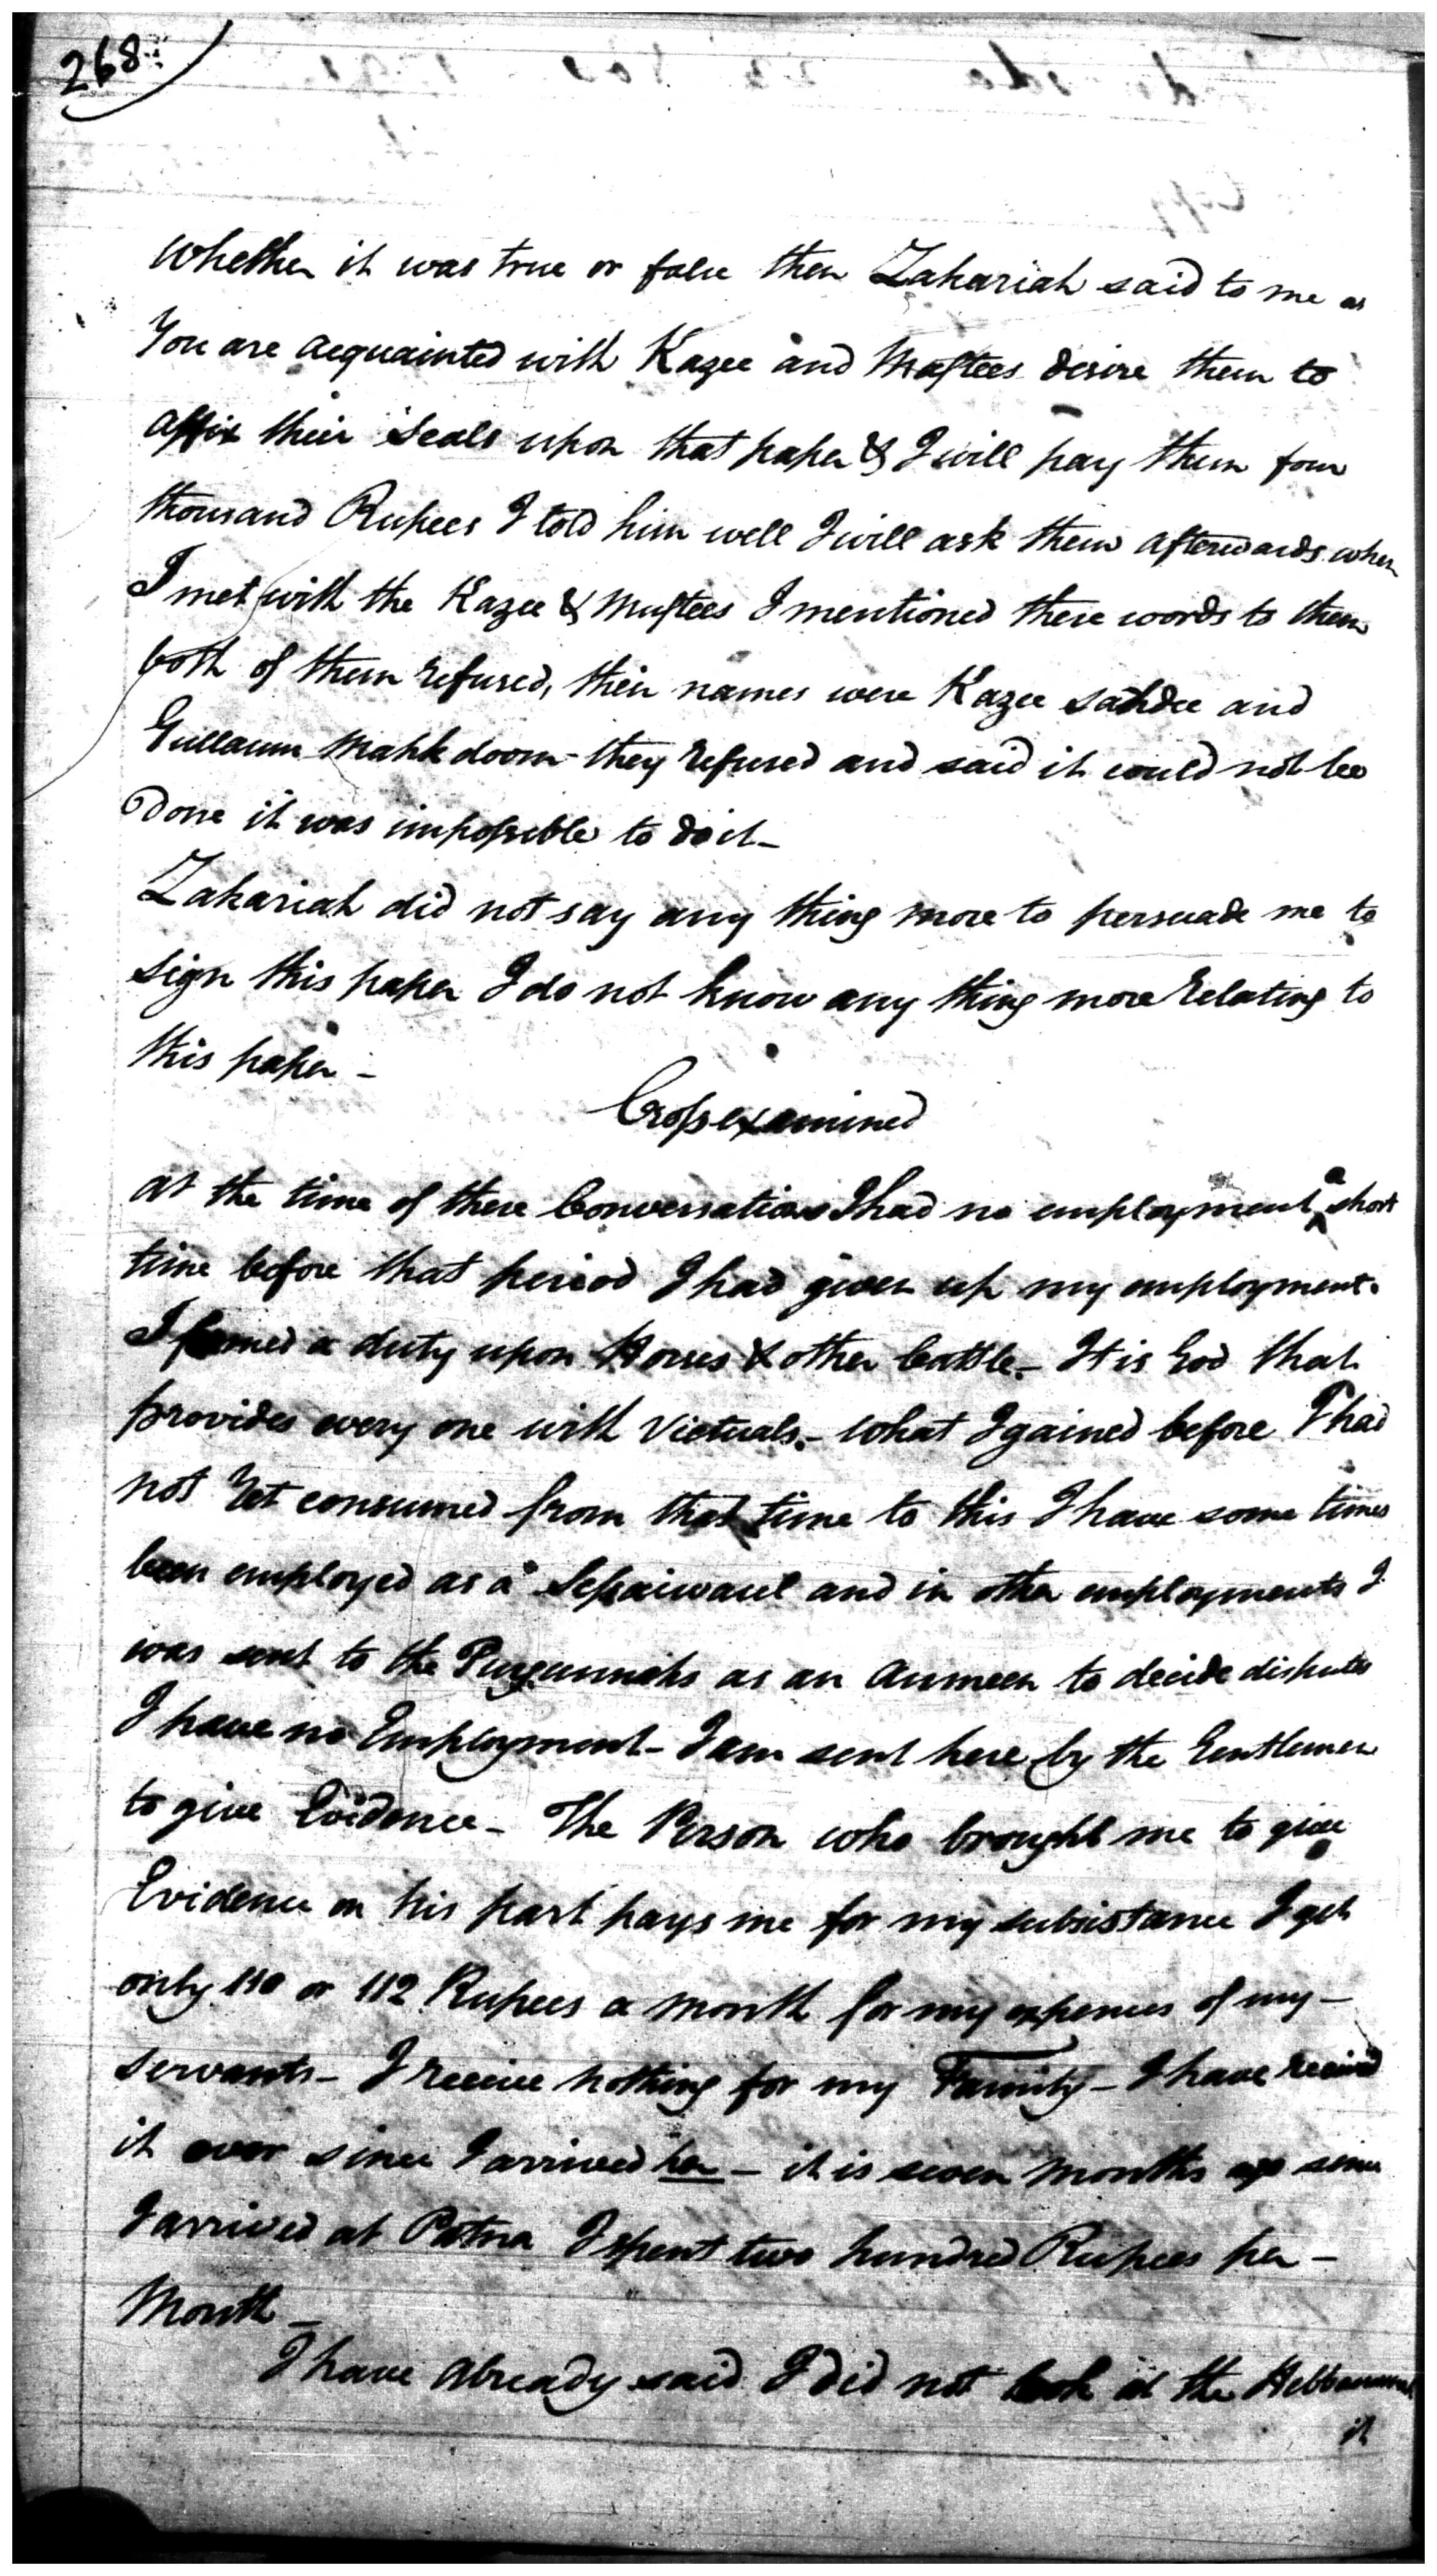 268
whether it was true or false then Zakariah said to me as
You are acquainted with Kazee and Muftees desire them to
affix their Seals upon that paper & I will pay them four
thousand Rupees I told him well I will ask them afterwards when
I met with the Kazee & Muftees I mentioned these words to them
both of them refused, their names were Kazee Sahdee and
Gullaum Mahkdoom - they refused and said it could not be
Done it was impossible to do it -
Zakariah did not say any thing more to persuade me to
sign this paper I do not know any thing more relating to
this paper -
Cross examined
at the time of these Conversations I had no employment a short
time before that period I had given up my employment.
I farmed a duty upon Horses & other Cattle. - It is God that
provides every one with Victuals. - what I gained before I had
not Yet consumed from that time to this I have some times
been employed as a and in other employments I
was sent to the Purgunnahs as an Aumeen to decide disputes
I have no Employment - I am sent here by the Gentlemen
to give Evidence - The Person who brought me to give
Evidence on his part pays me for my subsistance I get
only 110 or 112 Rupees a month for my expences of my -
servants - I receive nothing for my Family - I have received
it ever since I arrived here - it is seven months ago since
I arrived at Patna I spent two hundred Rupees per -
Month -
I have already said I did not look at the
it